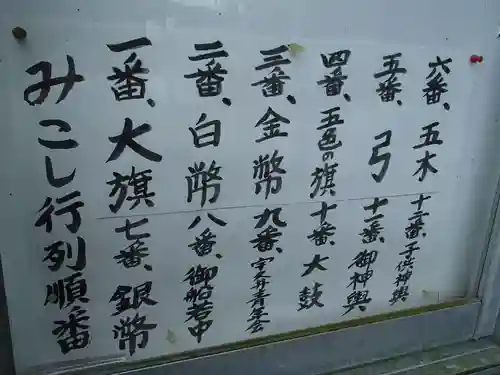 みこし行列順番
一番、大旗
二番、白幣
三番、金幣
四番、五色の旗
五番 弓
六番、五木
七番、銀幣
八番、御船若中
九番、宮井青年会
十番、大鼓
十一番、御神輿
十二番、子供神輿